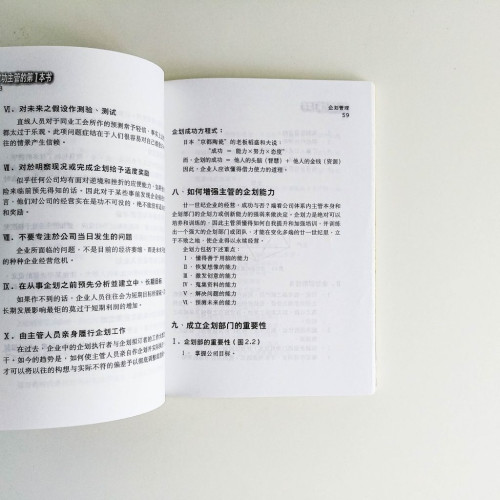 成功主管的第1本书
Ⅵ．对未来之假设作测验、测试
直线人员对于同业工会所作的预测常予轻信，事实上
都太过于乐观。此项问题症结在于人们很容易对自己
往的情景产生信赖。
Ⅶ．对於明察现况或完成企划给予适度奖励
似乎任何公司均有面对逆境和挫折的应变能力，如果
险来临前预先得知的话。因此对于某些事前发现企业
言，他们对公司的经营实在是功不可没的，绝不能
和奖励。
Ⅷ．不要专注於公司当日发生的问题
企业所面临的问题，不是目前的经济萎缩，而是
的种种企业经营危机。
Ⅸ．在从事企划之前预先分析並建立中、长期目标
如果作不到的话，企业人员往往会为短期目标
长期发展影响最钜的莫过于短期利润的增加。
Ⅹ．由主管人员亲身履行企划工作
在过去，企业中的企划执行者与企划拟订者的工作
干。如今的趋势是，如何使主管人员亲自作企划并实际执
才可以将以往的构想与实际不符的偏差予以彻底调整
企划管理
59
企划成功方程式：
日本“京都陶瓷”的老板稻盛和夫说：
“成功 ＝ 能力×努力×态度”
而，企划的成功 ＝ 他人的头脑（智慧）＋ 他人的金钱（资源）
因此，企业人应该懂得借力使力的道理。
八．如何增强主管的企划能力
廿一世纪企业的经营，成功与否？端看公司体系内主管本身和
企划部门的企划力或创新能力的强弱来做决定。企划力是绝对可以
培养和训练的，因此主管须懂得如何自我提升和加强培训，并训练
出一个强大的企划部门或团队，才能在变化多端的廿一世纪里，立
于不败之地，使企业得以永续经营。
企划力包括下述重点：
Ⅰ．懂得善于用脑的能力
Ⅱ．恢复想像的能力
Ⅲ．激发创意的能力
Ⅳ．蒐集资料的能力
Ⅴ．解决问题的能力
Ⅵ．预测未来的能力
九．成立企划部门的重要性
1．企划部的重要性（图2.2）
Ⅰ．掌握公司目标。